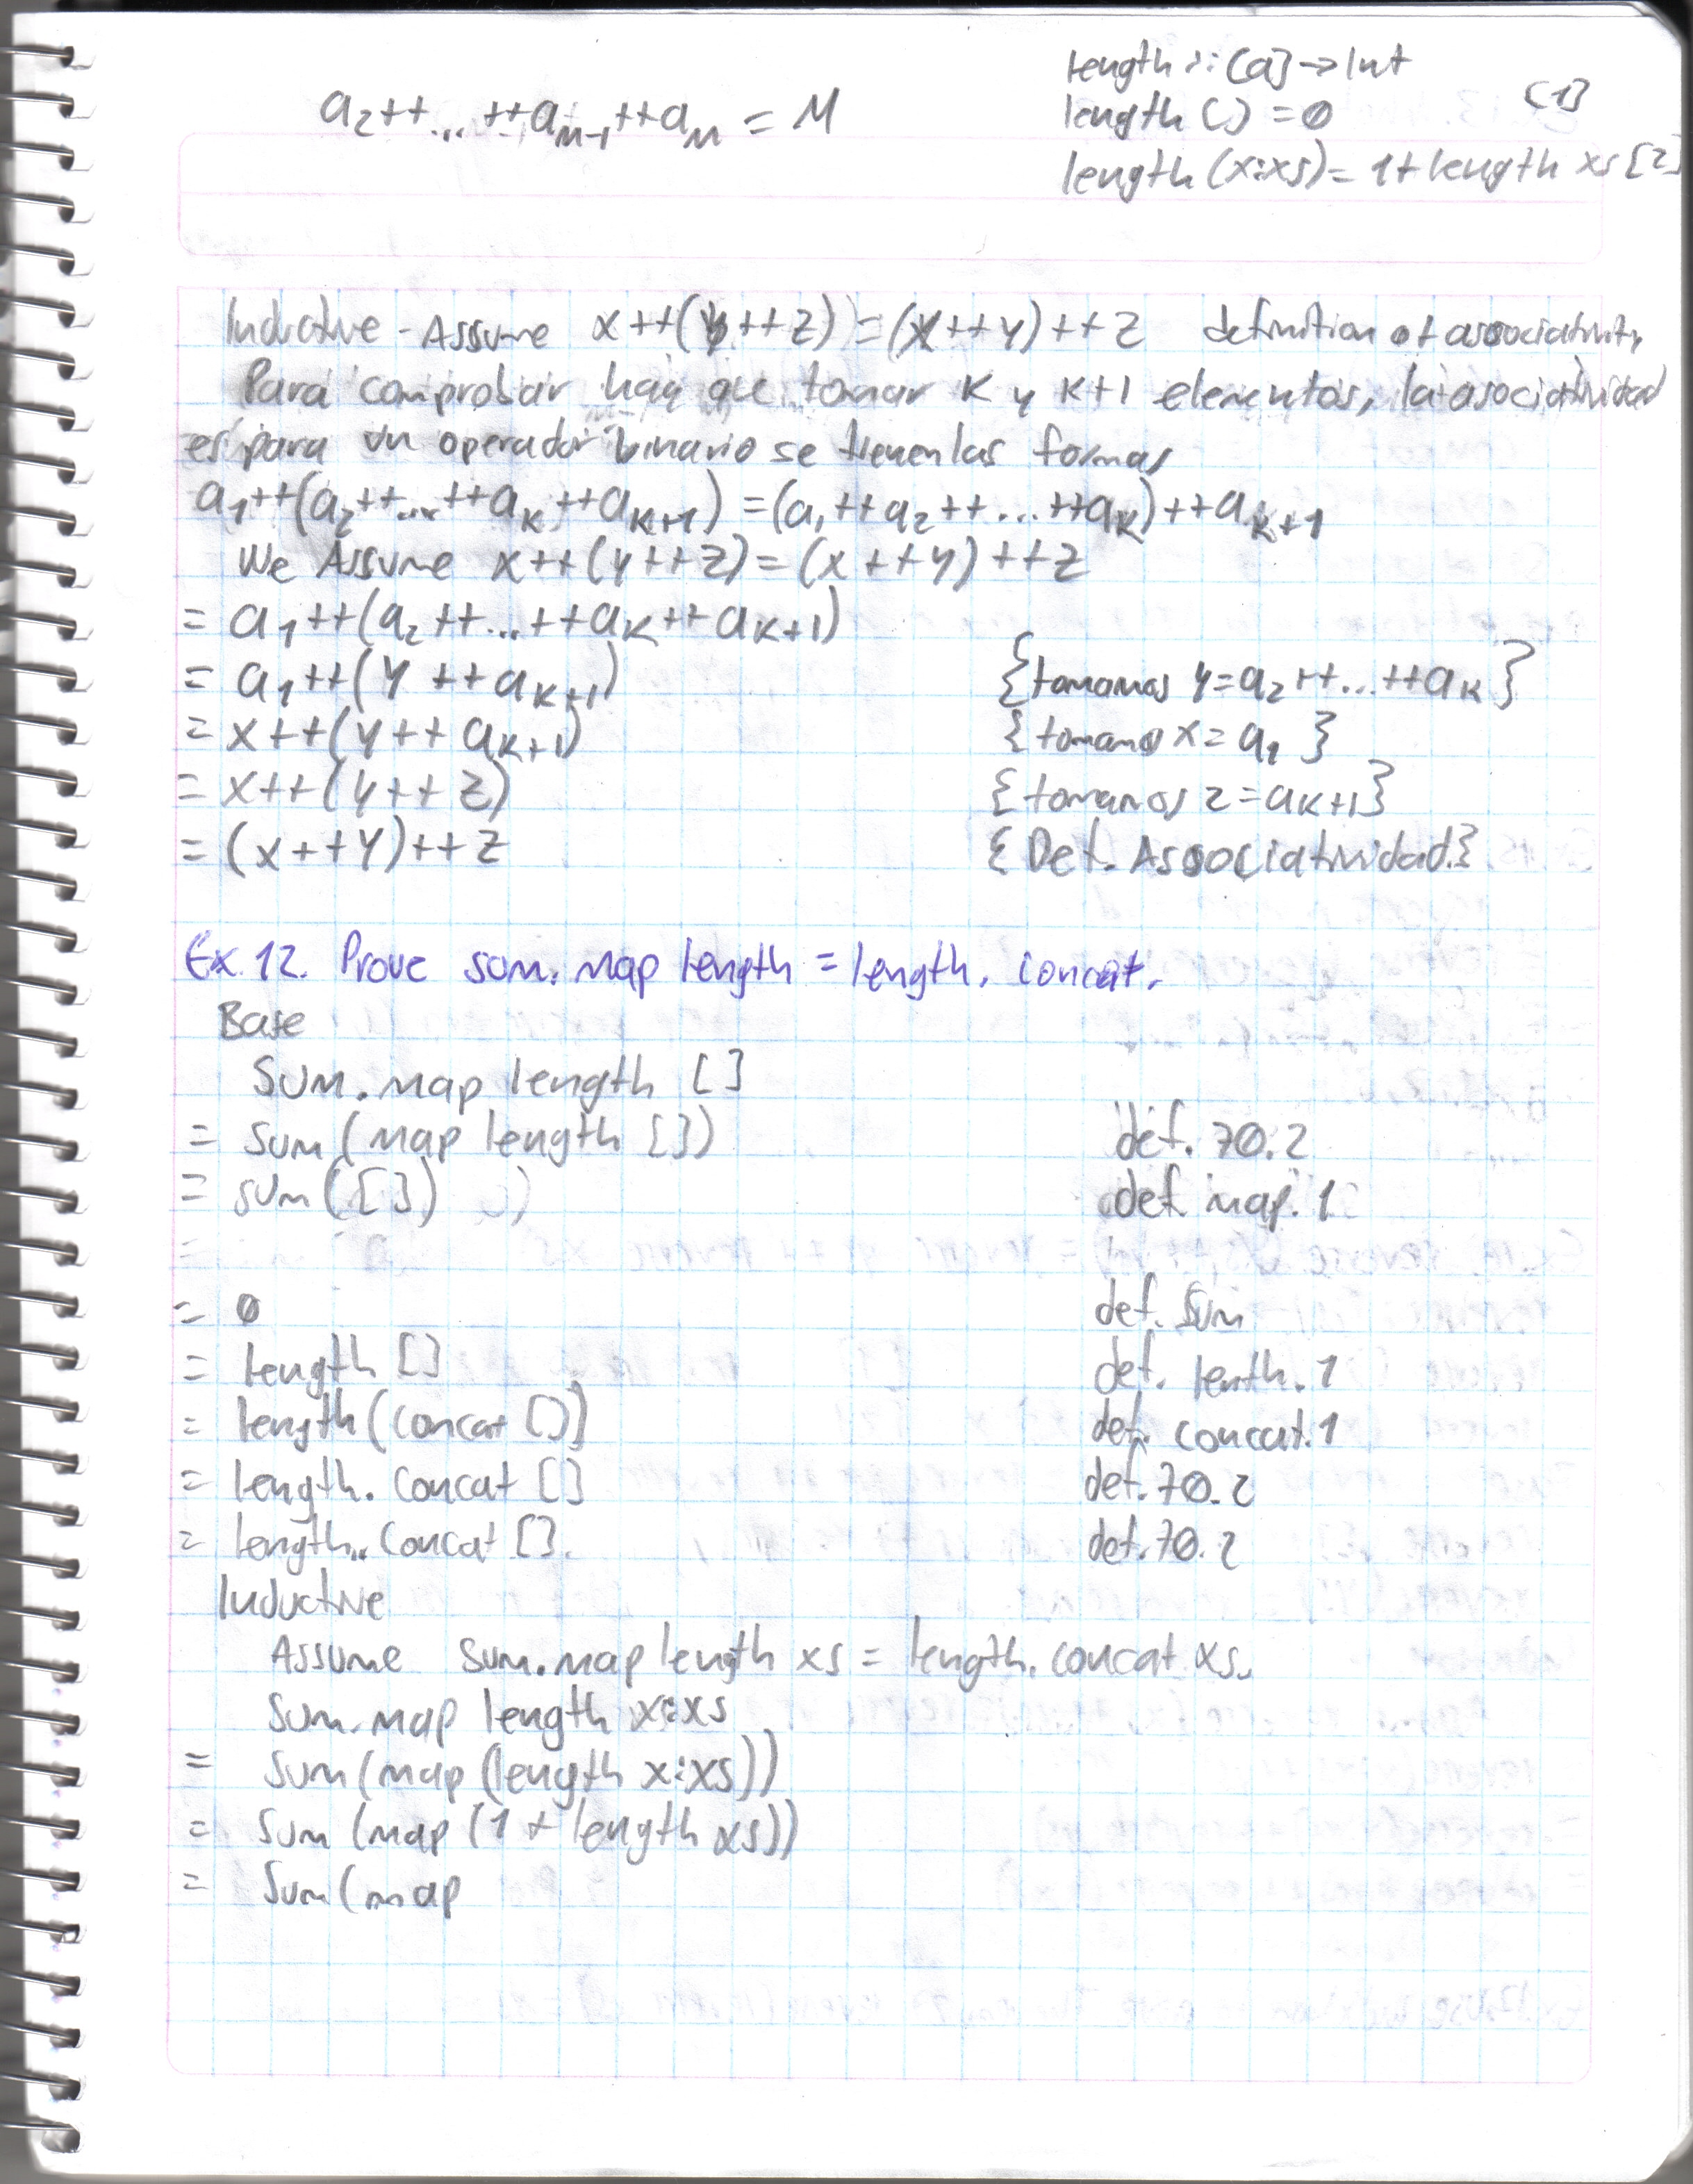 a₂++...++aₘ₋₁++aₘ = M
length :: [a] → Int
length [] = 0 [1]
length (x:xs) = 1 + length xs [2]
Inductive - Assume x++(y++z) = (x++y)++z definition of associativity
Para comprobar hay que tomar K y K+1 elementos, la asociatividad
es para un operador binario se tienen las formas
a₁++(a₂++...++aₖ++aₖ₊₁) = (a₁++a₂++...++aₖ)++aₖ₊₁
We Assume x++(y++z) = (x++y)++z
= a₁++(a₂++...++aₖ++aₖ₊₁)
= a₁++(y++aₖ₊₁) {tomamos y=a₂++...++aₖ}
= x++(y++aₖ₊₁) {tomamos x=a₁}
= x++(y++z) {tomamos z=aₖ₊₁}
= (x++y)++z {Def. Associatividad.}
Ex.12. Prove sum.map length = length.concat.
Base
Sum.map length []
= Sum(map length []) def. 70.2
= sum([]) def map.1
=
= 0 def. Sum
= length [] def. lenth.1
= length(concat []) def. concat.1
= length.concat [] def.70.2
= length..concat []. def.70.2
Inductive
Assume Sum.map length xs = length.concat xs.
Sum.map length x:xs
= Sum(map(length x:xs))
= Sum(map(1+length xs))
= Sum(map